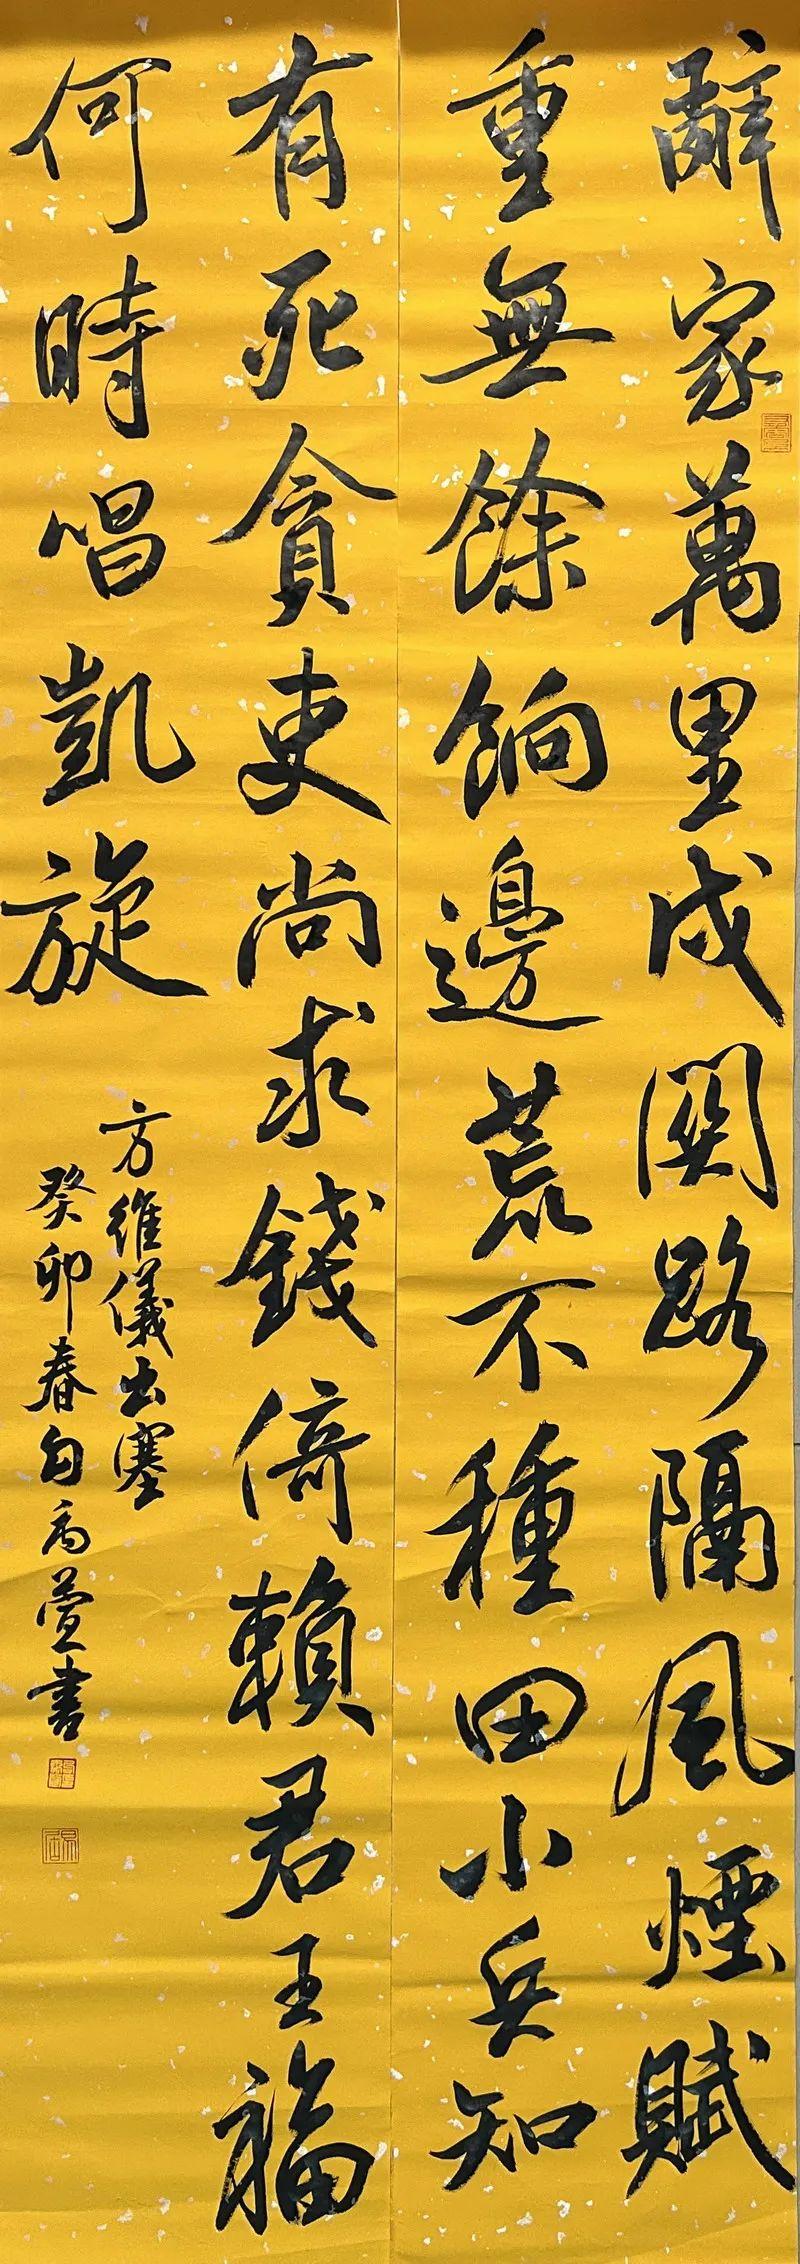 辭家萬里戍關路隔風煙賦
重無餘餉邊荒不種田小兵知
有死貪吏尚求錢倚賴君王福
何時唱凱旋
方維儀出塞
癸卯春白萱書